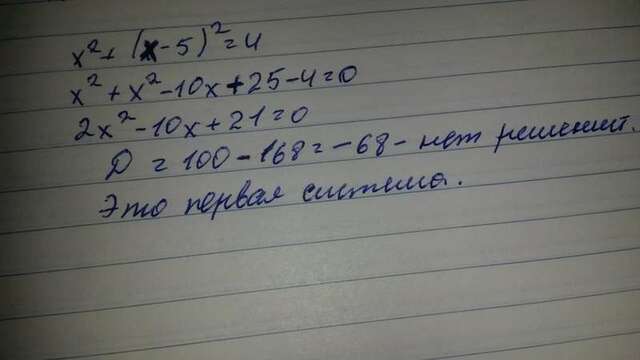 x² + (x-5)² = 4
x² + x² - 10x + 25 - 4 = 0
2x² - 10x + 21 = 0
D = 100 - 168 = -68 - нет решений.
Это первая система.